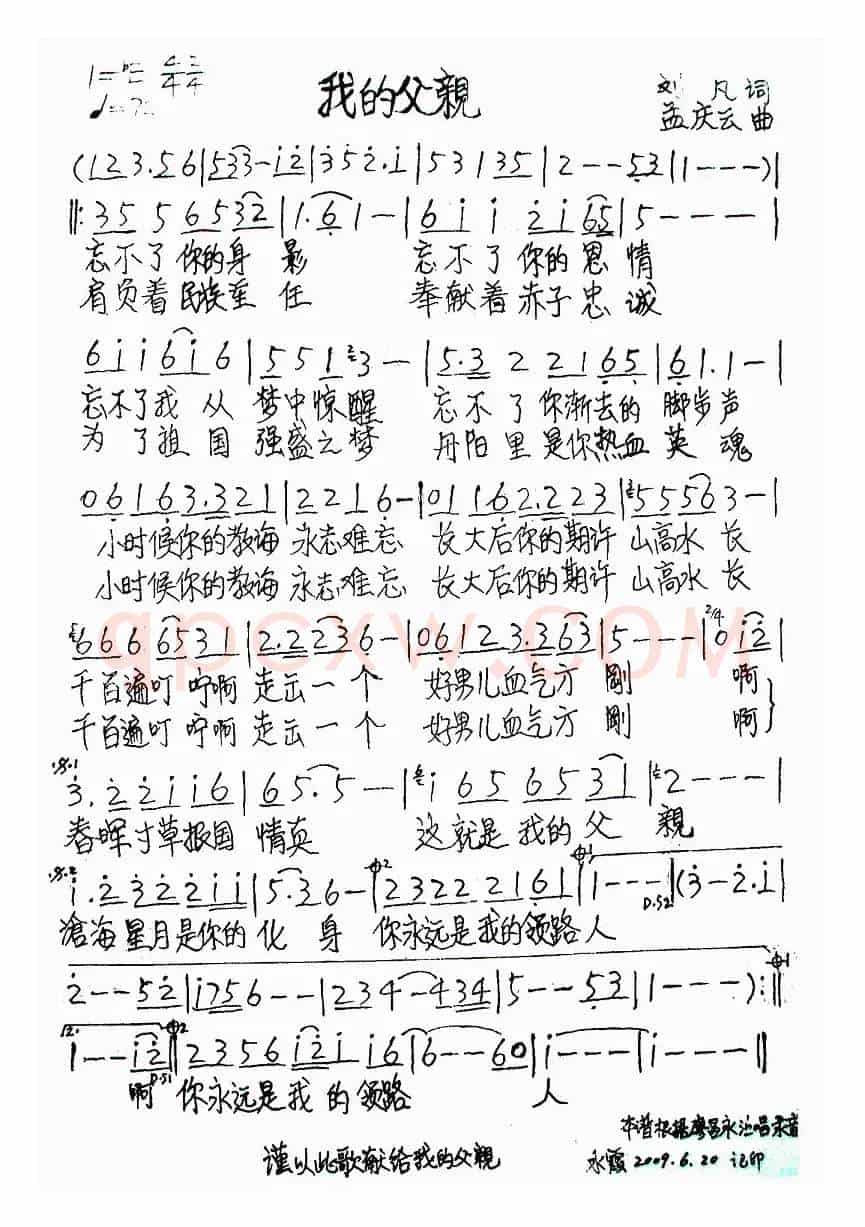 1=♭E 4/4 2/4
♩=72
我的父親
刘 凡 词
孟庆云 曲
(1 2 3. 5 6 | 5 3 3 - i 2 | 3 5 2. i | 5 3 1 3 5 | 2 - - 5 3 | 1 - - - )|
‖: 3 5 5 6 5 3 2 | 1. 6 1 - | 6 i i 2 i 6 5 | 5 - - - |
忘不了你的身影 忘不了你的恩情
肩负着民族重任 奉献着赤子忠诚
6 i i 6 i 6 | 5 5 1 3 - | 5. 3 2 2 1 6 5 | 6 1. 1 - |
忘不了我从梦中惊醒 忘不了你渐去的脚步声
为了祖国强盛之梦 丹阳里是你热血英魂
0 6 1 6 3. 3 2 1 | 2 2 1 6 - | 0 1 1 6 2. 2 2 3 | 5 5 5 6 3 - |
小时候你的教诲 永志难忘 长大后你的期许 山高水长
小时候你的教诲 永志难忘 长大后你的期许 山高水长
6 6 6 6 5 3 1 | 2. 2 2 3 6 - | 0 6 1 2 3. 3 6 3 | 5 - - - | 2/4 0 i 2 |
千百遍叮咛啊 走出一个 好男儿血气方剛 啊
千百遍叮咛啊 走出一个 好男儿血气方剛 啊
3. 2 2 i i 6 | 6 5. 5 - | i 6 5 6 5 3 1 | 2 - - - |
春晖寸草报国情真 这就是我的父親
i. 2 3 2 2 i i | 5. 3 6 - | 2 3 2 2 2 1 6 1 | 1 - - - | (3 - 2. i |
D.S2
滄海星月是你的化身 你永远是我的领路人
2 - - 5 2 | i 7 5 6 - - | 2 3 4 - 4 3 4 | 5 - - 5 3 | 1 - - - ) :‖
2.
1 - - i 2 ‖ 2 3 5 6 i 2 i i 6 | 6 - - 6 0 | i - - - | i - - - ‖
D.S1
啊 你永远是我的领路 人
本谱根据廖昌永演唱录音
谨以此歌献给我的父親
永霞 2009.6.20 记印
qpcxw.com